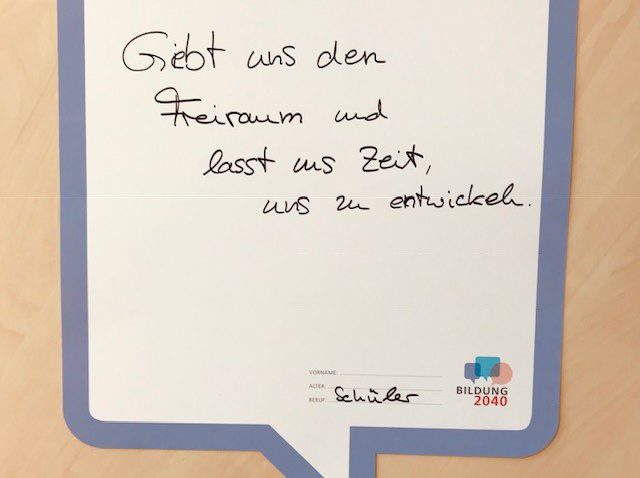 Giebt uns den
Freiraum und
lasst uns Zeit,
uns zu entwickeln.
VORNAME:
ALTER:
BERUF: Schüler
BILDUNG
2040